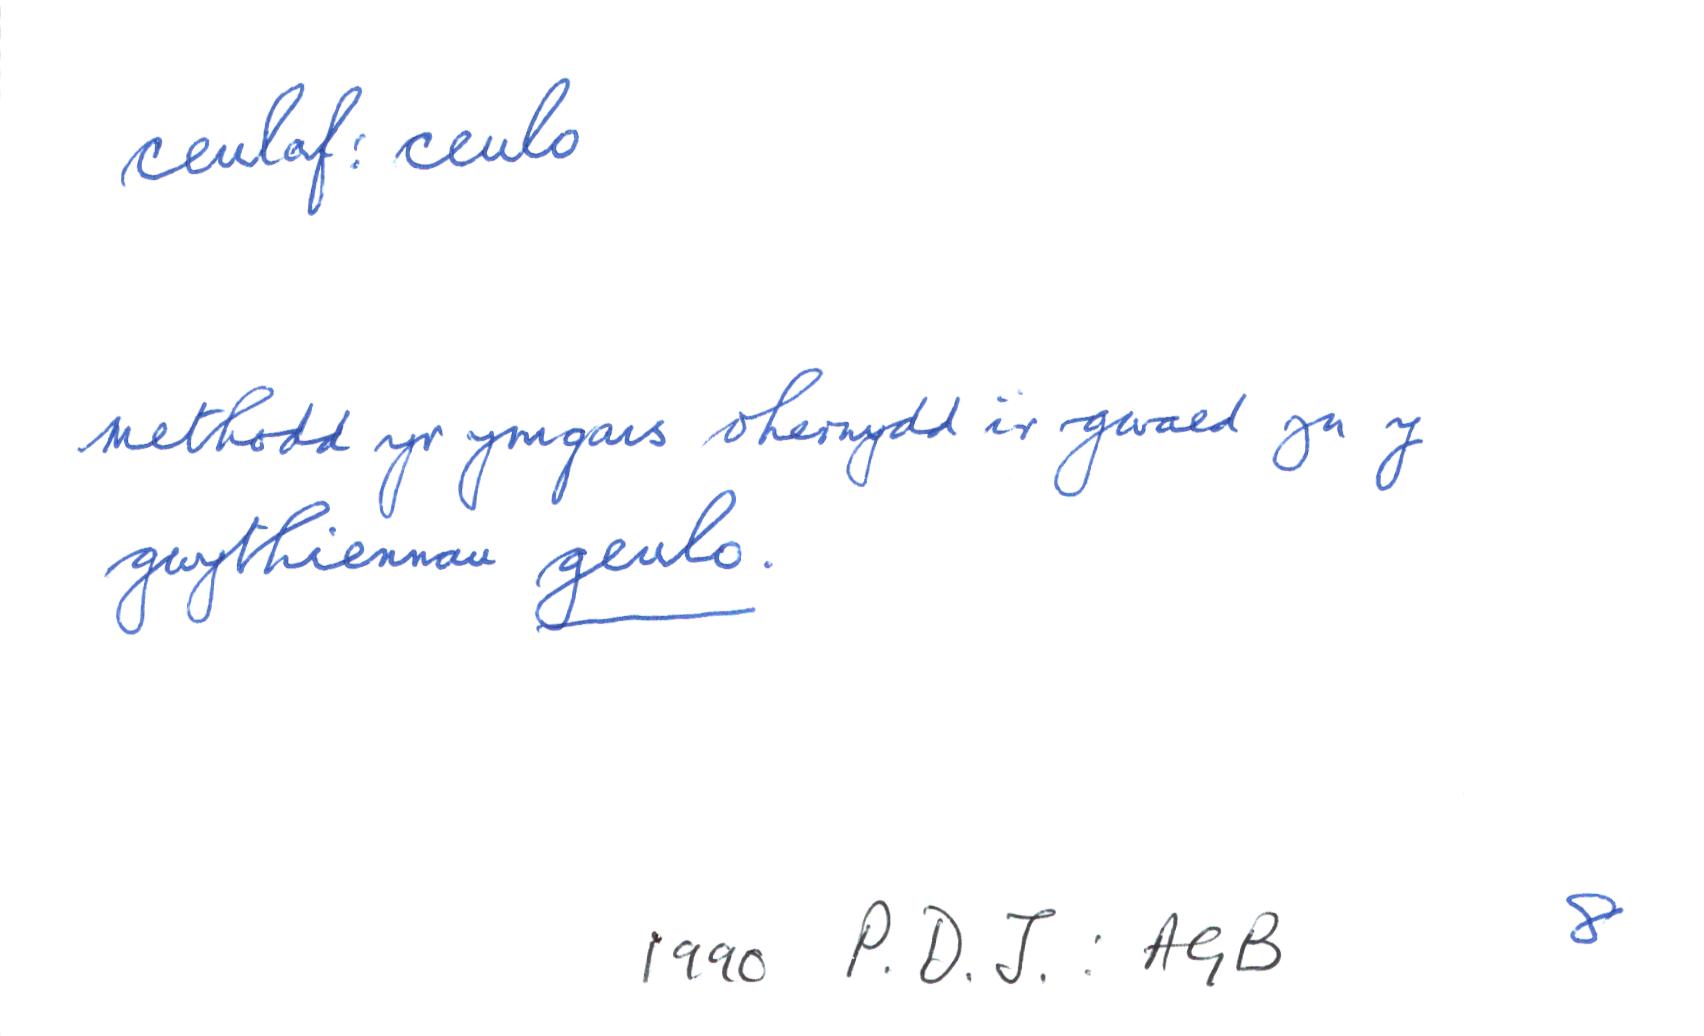 ceulaf: ceulo
methodd yr ymgais oherwydd i'r gwaed yn y
gwythiennau geulo.
1990 P. D. J. : AGB 8